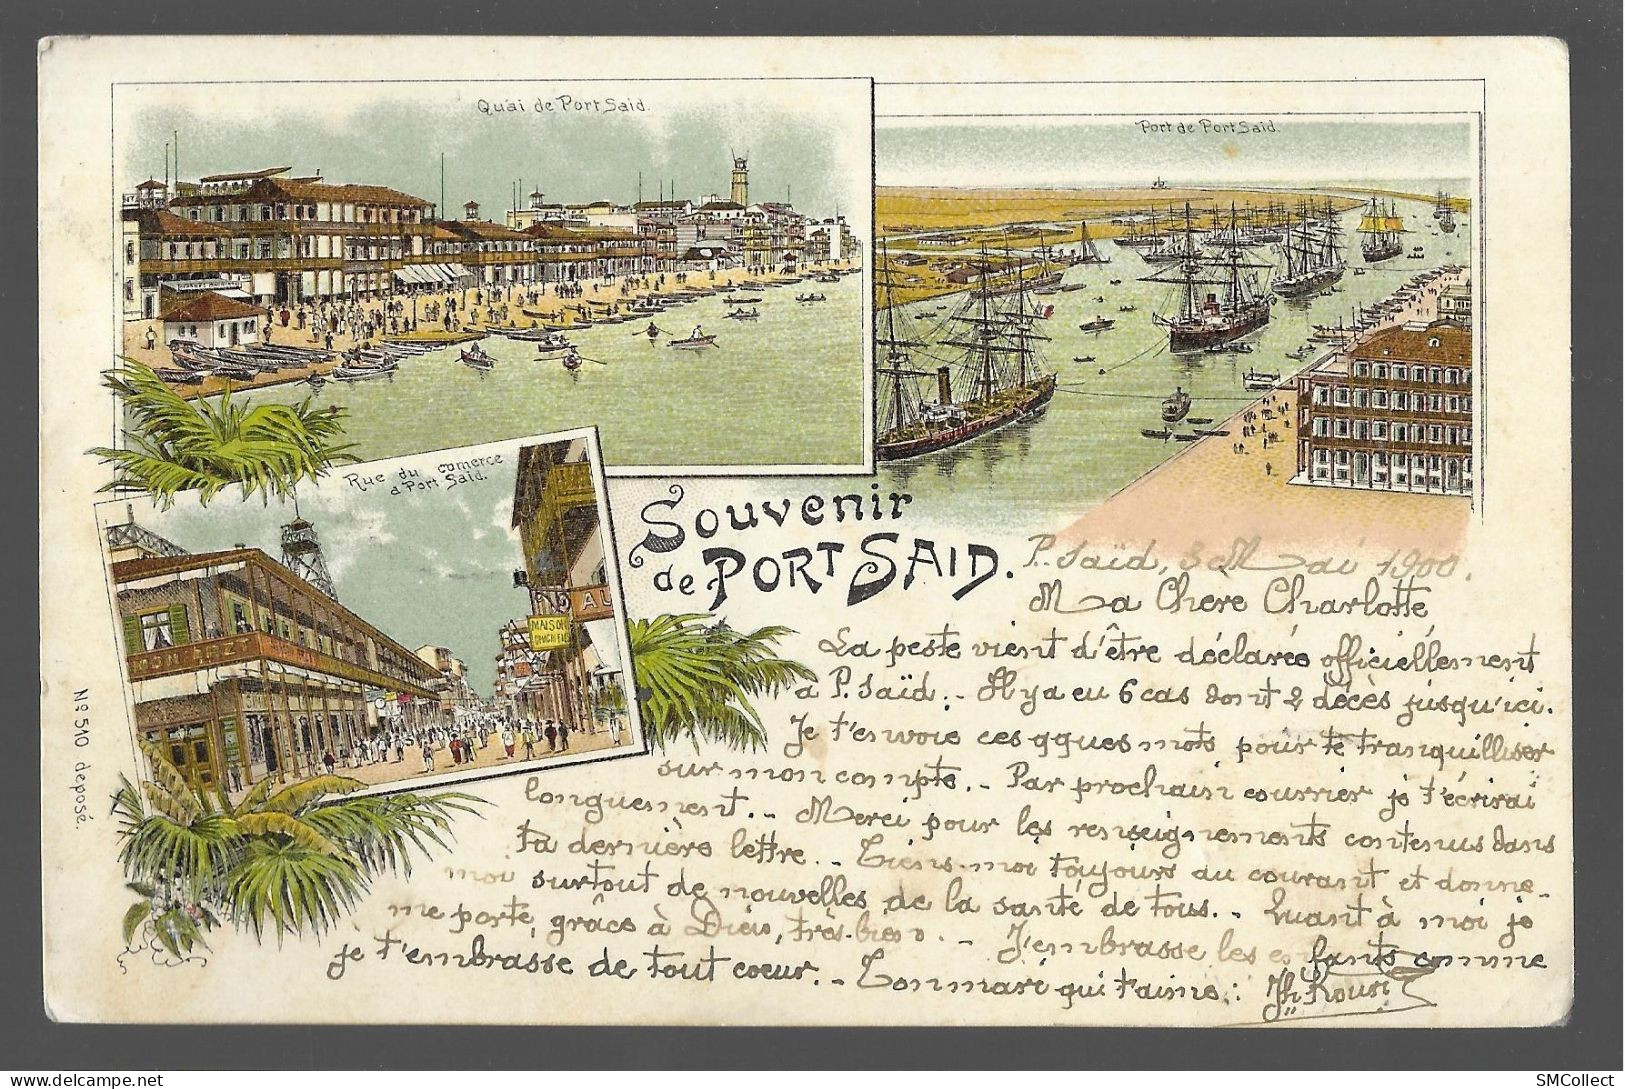 Quai de Port Said.
Port de Port Said.
Rue du comerce
a Port Said.
MAISON
MON
Souvenir
de PORT SAID.
No 510 deposé.
P. Saïd, 3 Mai 1900.
Ma Chere Charlotte,
La peste vient d'être déclarée officiellement
a P. Saïd. - Il y a eu 6 cas dont 2 décès jusqu'ici.
Je t'envoie ces qques mots pour te tranquilliser
sur mon compte. - Par prochain courrier je t'écrirai
longuement. - Merci pour les renseignements contenus dans
ta dernière lettre. - Tiens-moi toujours au courant et donne-
moi surtout de nouvelles de la santé de tous. - Quant à moi je
me porte, grâce à Dieu, très-bien. - J'embrasse les enfants comme
je t'embrasse de tout coeur. - Ton mari qui t'aime:
SMCollect